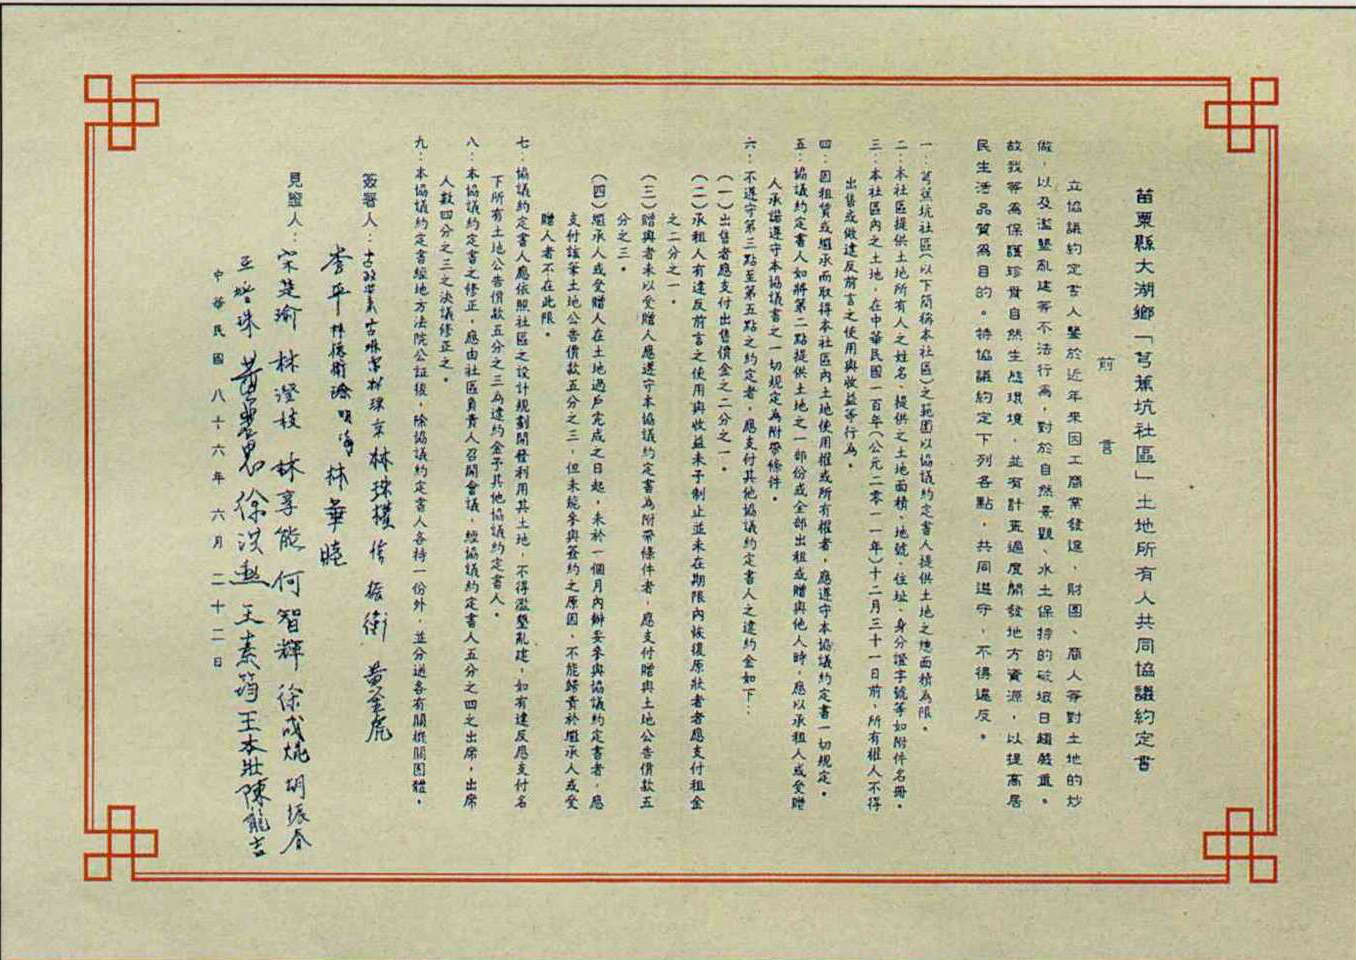 苗栗縣大湖鄉「芎蕉坑社區」土地所有人共同協議約定書
前言
立協議約定書人鑒於近年來因工商業發達，財團、商人等對土地的炒
做，以及濫墾亂建等不法行為，對於自然景觀、水土保持的破壞日趨嚴重。
故我等為保護珍貴自然生態環境，並有計畫適度開發地方資源，以提高居
民生活品質為目的。特協議約定下列各點，共同遵守，不得違反。
一：芎蕉坑社區(以下簡稱本社區)之範圍以協議約定書人提供土地之總面積為限。
二：本社區提供土地所有人之姓名、提供之土地面積、地號、住址、身分證字號等如附件名冊。
三：本社區內之土地，在中華民國一百年(公元二零一一年)十二月三十一日前，所有權人不得
出售或做違反前言之使用與收益等行為。
四：因租賃或繼承而取得本社區內土地使用權或所有權者，應遵守本協議約定書一切規定。
五：協議約定書人如將第二點提供土地之一部份或全部出租或贈與他人時，應以承租人或受贈
人承諾遵守本協議書之一切規定為附帶條件。
六：不遵守第三點至第五點之約定者，應支付其他協議約定書人之違約金如下：
(一)出售者應支付出售價金之二分之一。
(二)承租人有違反前言之使用與收益未予制止並未在期限內恢復原狀者者應支付租金
之二分之一。
(三)贈與者未以受贈人應遵守本協議約定書為附帶條件者，應支付贈與土地公告價款五
分之三。
(四)繼承人或受贈人在土地過戶完成之日起，未於一個月內辦妥參與協議約定書者，應
支付該筆土地公告價款五分之三，但未能參與簽約之原因，不能歸責於繼承人或受
贈人者不在此限。
七：協議約定書人應依照社區之設計規劃開發利用其土地，不得濫墾亂建，如有違反應支付名
下所有土地公告價款五分之三為違約金予其他協議約定書人。
八：本協議約定書之修正，應由社區負責人召開會議，經協議約定書人五分之四之出席，出席
人數四分之三之決議修正之。
九：本協議約定書經地方法院公証後，除協議約定書人各持一份外，並分送各有關機關團體。
簽署人：林珠 黃金虎
李平 林華
見證人：宋楚瑜 林澄枝 林享能 何智輝 徐成焜 胡振春
王素筠 王本壯 陳龍吉
中華民國八十六年六月二十二日